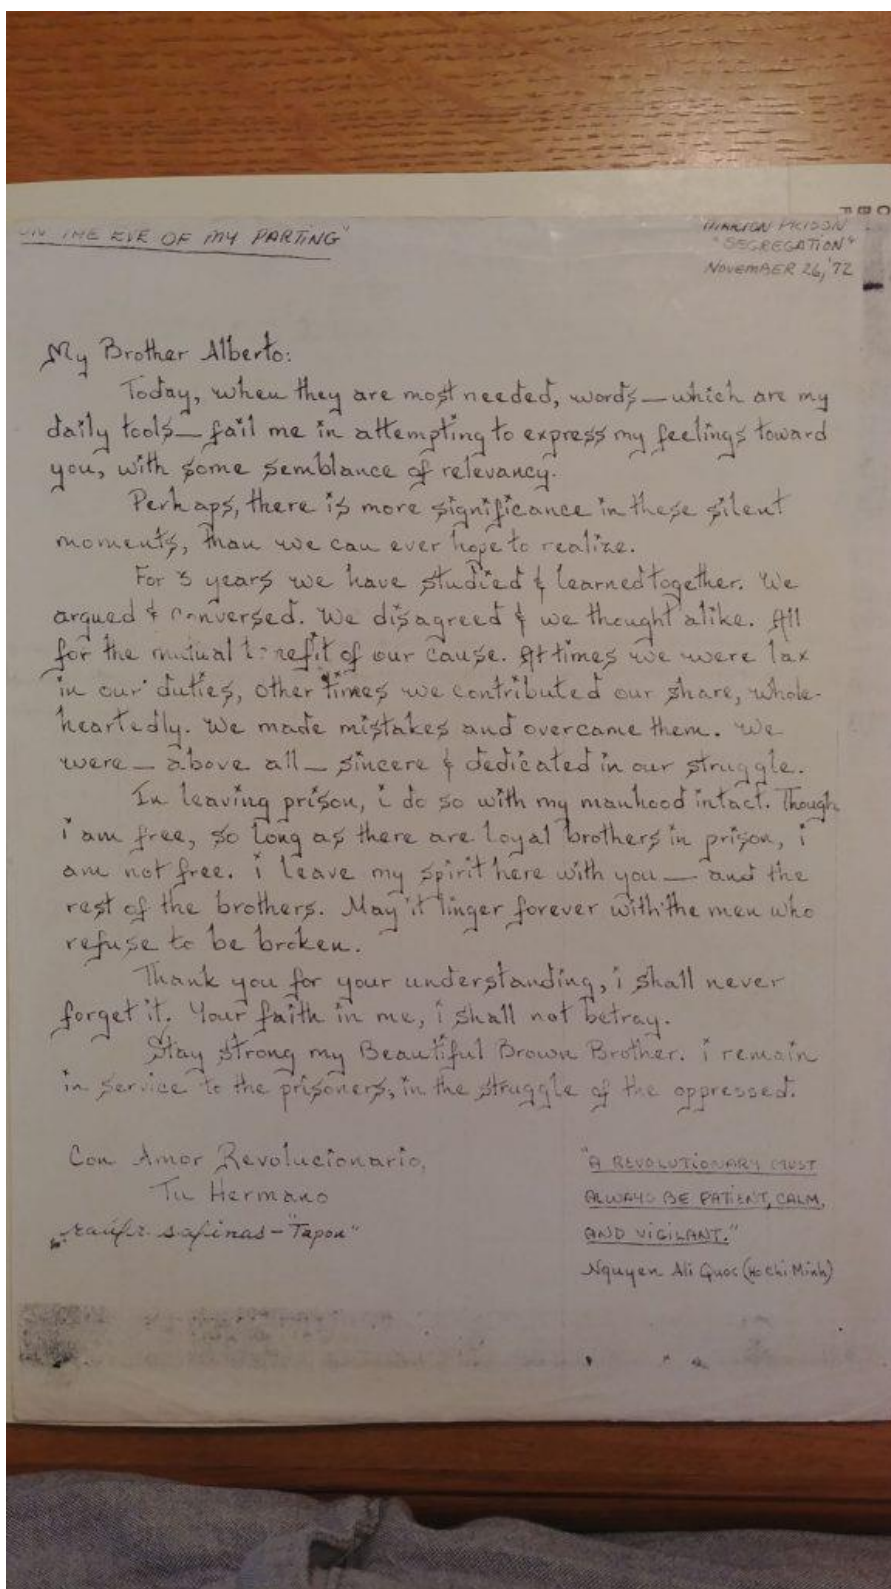 "ON THE EVE OF MY PARTING"
MARION PRISON
"SEGREGATION"
NOVEMBER 26, '72
My Brother Alberto:
Today, when they are most needed, words — which are my
daily tools — fail me in attempting to express my feelings toward
you, with some semblance of relevancy.
Perhaps, there is more significance in these silent
moments, than we can ever hope to realize.
For 3 years we have studied & learned together. We
argued & conversed. We disagreed & we thought alike. All
for the mutual benefit of our cause. At times we were lax
in our duties, other times we contributed our share, whole-
heartedly. We made mistakes and overcame them. We
were — above all — sincere & dedicated in our struggle.
In leaving prison, i do so with my manhood intact. Though
i am free, so long as there are loyal brothers in prison, i
am not free. i leave my spirit here with you — and the
rest of the brothers. May it linger forever with the men who
refuse to be broken.
Thank you for your understanding, i shall never
forget it. Your faith in me, i shall not betray.
Stay strong my Beautiful Brown Brother. i remain
in service to the prisoners, in the struggle of the oppressed.
Con Amor Revolucionario,
Tu Hermano
salinas - "Tapon"
"A REVOLUTIONARY MUST
ALWAYS BE PATIENT, CALM,
AND VIGILANT."
Nguyen Ali Quoc (Ho Chi Minh)